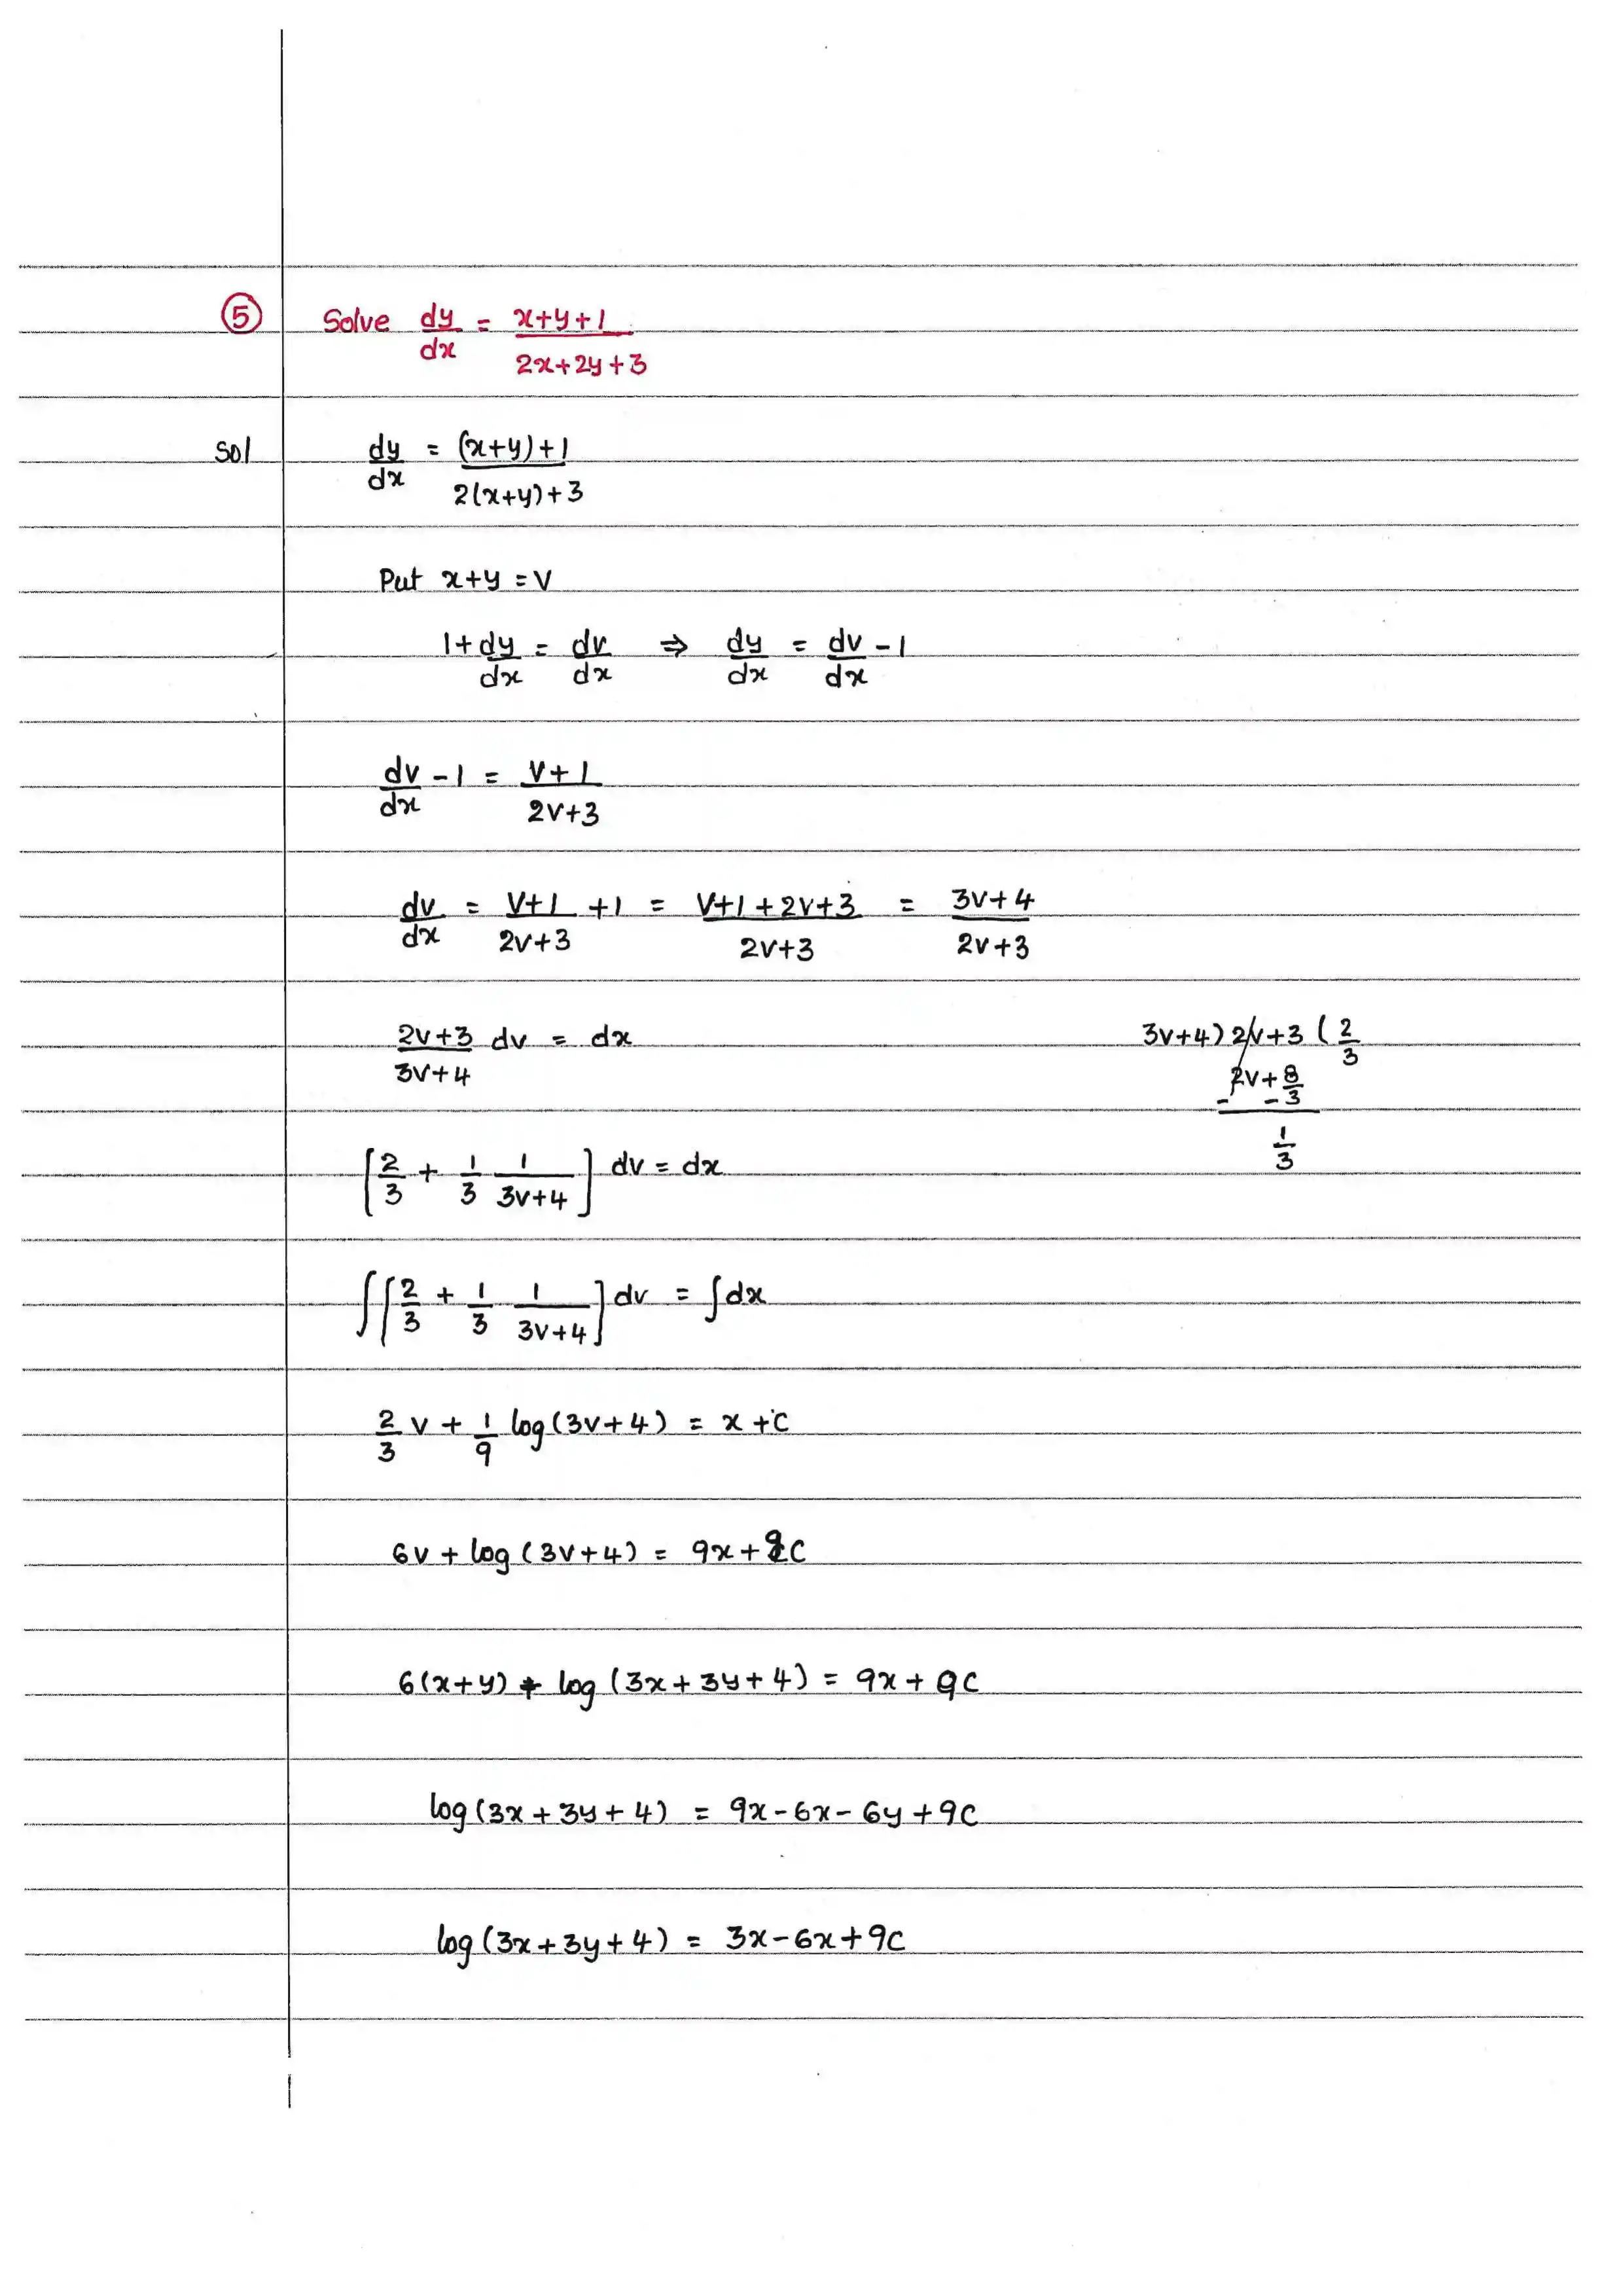 ⑤ Solve dy/dx = x+y+1 / 2x+2y+3
Sol dy/dx = (x+y)+1 / 2(x+y)+3
Put x+y = v
1+dy/dx = dv/dx ⇒ dy/dx = dv/dx - 1
dv/dx - 1 = v+1 / 2v+3
dv/dx = v+1 / 2v+3 + 1 = v+1+2v+3 / 2v+3 = 3v+4 / 2v+3
2v+3 / 3v+4 dv = dx
3v+4) 2v+3 ( 2/3
2v+8/3
- -
1/3
[2/3 + 1/3 1/3v+4] dv = dx
∫[2/3 + 1/3 1/3v+4] dv = ∫dx
2/3 v + 1/9 log(3v+4) = x+c
6v + log(3v+4) = 9x+9c
6(x+y) + log(3x+3y+4) = 9x+9c
log(3x+3y+4) = 9x-6x-6y+9c
log(3x+3y+4) = 3x-6x+9c